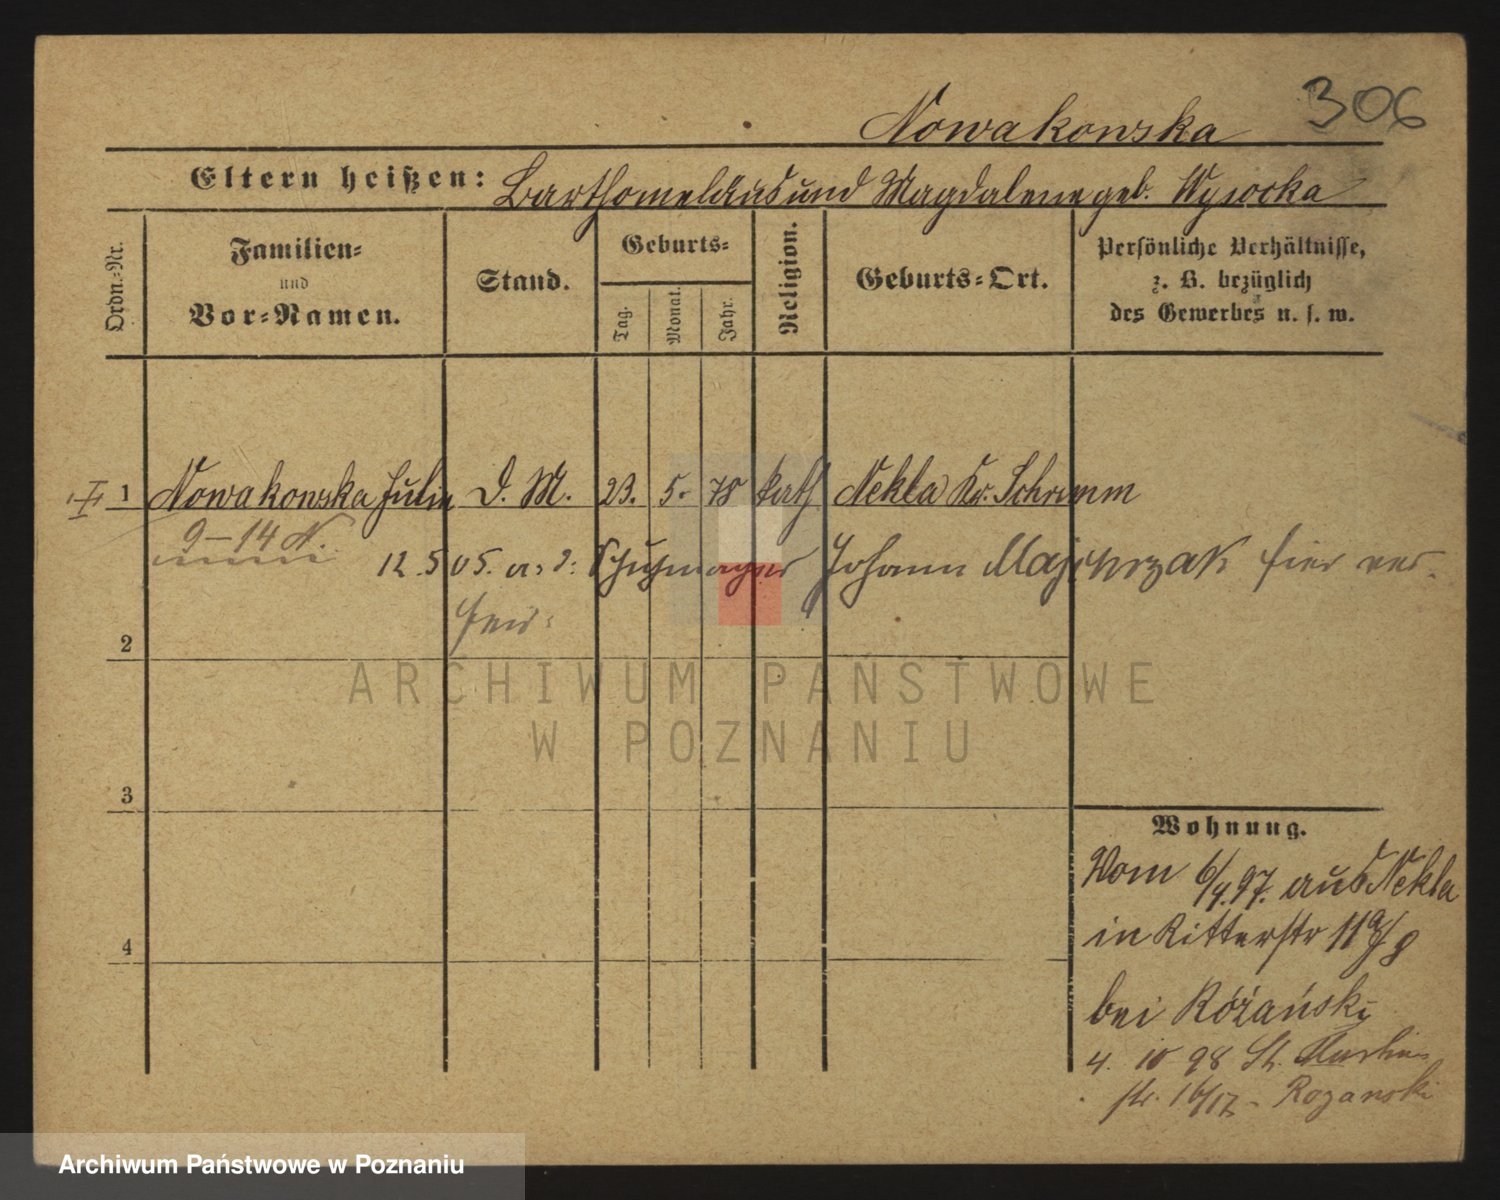 306
Nowakowska
Eltern heißen: Barthomeläus und Magdalene geb. Wysocka
Ordn.=Nr.
Familien=
und
Vor=Namen.
Stand.
Geburts=
Tag.
Monat.
Jahr.
Religion.
Geburts=Ort.
Persönliche Verhältnisse,
z. B. bezüglich
des Gewerbes u. s. w.
1 Nowakowska Julie D. M. 23. 5. 78 kath Nekla Kr. Schrimm
9–14 N.
12.5 05. a. d. Schuhmacher Johann Majchrzak hier ver-
2
3
4
Wohnung.
Vom 6/4.97. aus Nekla
in Ritterstr 11a/
bei Różański
4. 10 98 St. Martin
str. 16/17 - Rozanski
ARCHIWUM PAŃSTWOWE
W POZNANIU
Archiwum Państwowe w Poznaniu